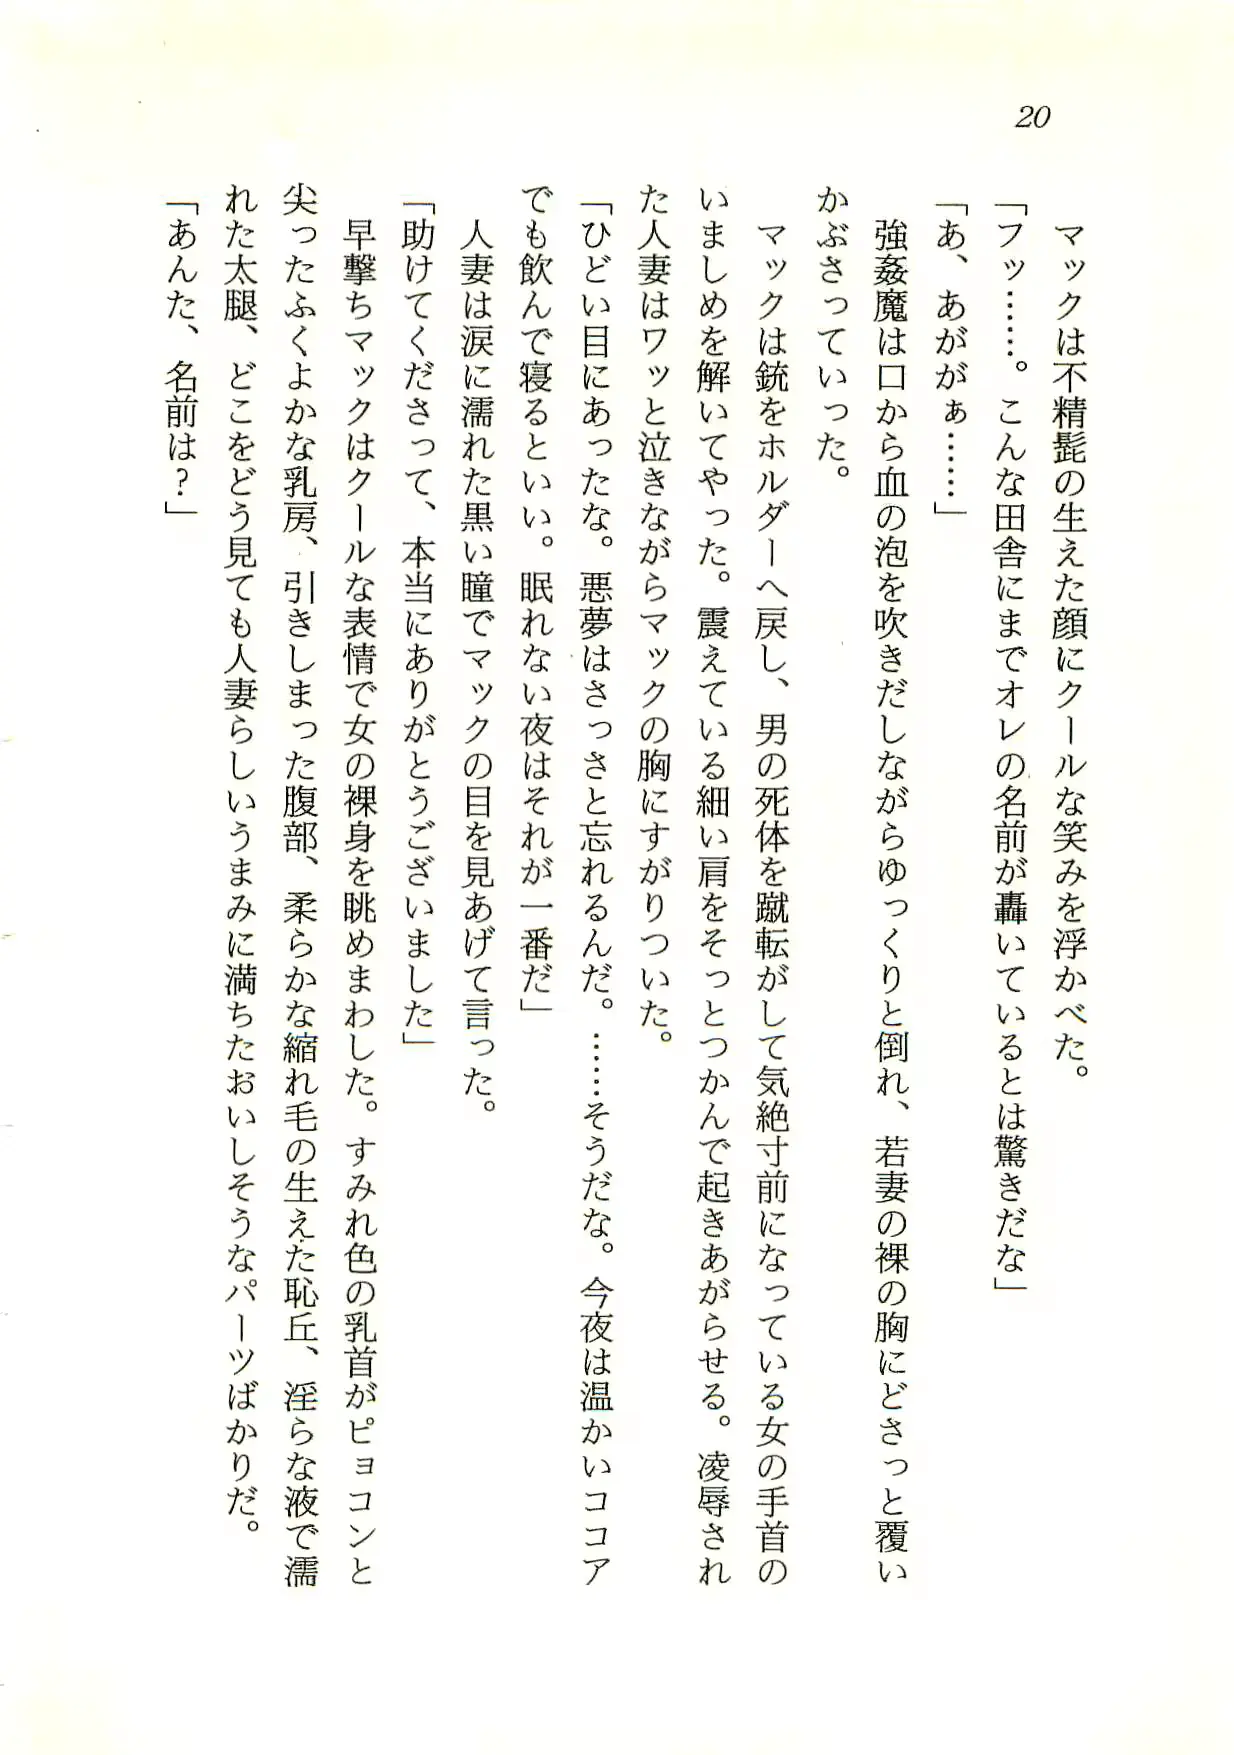 20
マックは不精髭の生えた顔にクールな笑みを浮かべた。
「フッ……。こんな田舎にまでオレの名前が轟いているとは驚きだな」
「あ、あががぁ……」
強姦魔は口から血の泡を吹きだしながらゆっくりと倒れ、若妻の裸の胸にどさっと覆い
かぶさっていった。
マックは銃をホルダーへ戻し、男の死体を蹴転がして気絶寸前になっている女の手首の
いましめを解いてやった。震えている細い肩をそっとつかんで起きあがらせる。凌辱され
た人妻はワッと泣きながらマックの胸にすがりついた。
「ひどい目にあったな。悪夢はさっさと忘れるんだ。……そうだな。今夜は温かいココア
でも飲んで寝るといい。眠れない夜はそれが一番だ」
人妻は涙に濡れた黒い瞳でマックの目を見あげて言った。
「助けてくださって、本当にありがとうございました」
早撃ちマックはクールな表情で女の裸身を眺めまわした。すみれ色の乳首がピョコンと
尖ったふくよかな乳房、引きしまった腹部、柔らかな縮れ毛の生えた恥丘、淫らな液で濡
れた太腿、どこをどう見ても人妻らしいうまみに満ちたおいしそうなパーツばかりだ。
「あんた、名前は？」